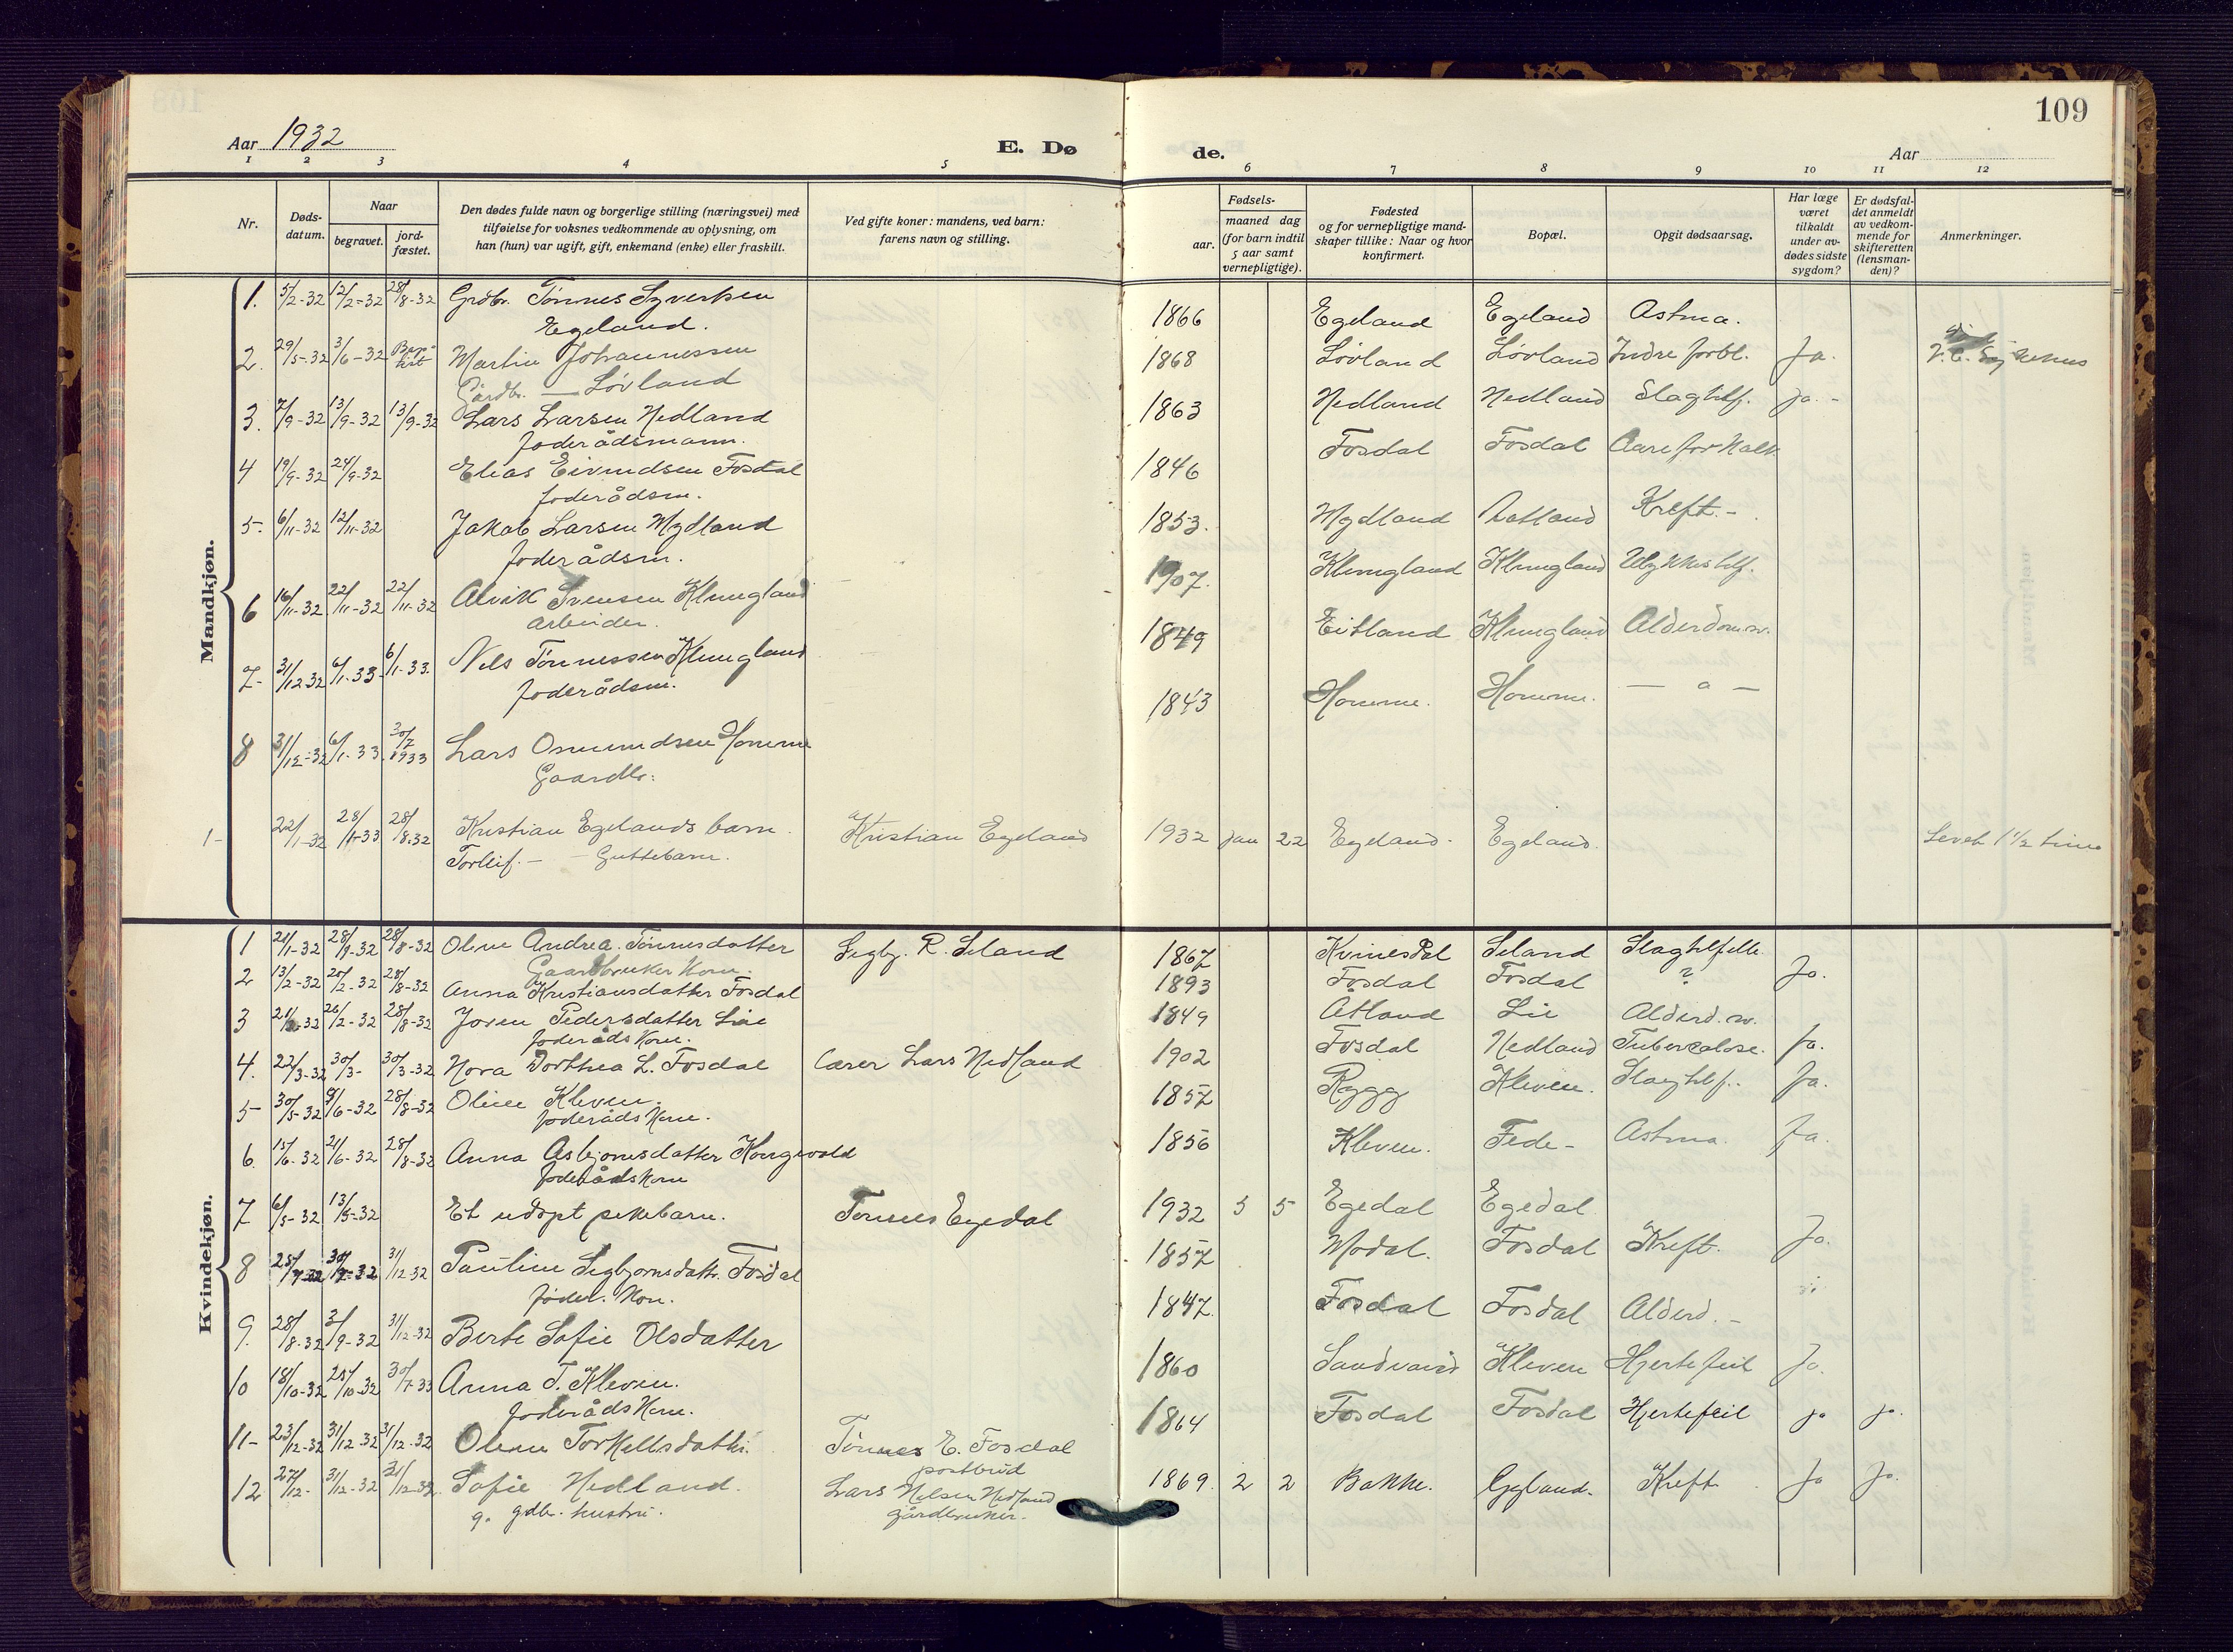 109
Aar 1932
E. Dø
de.
Aar
1 2 3 4 5 6 7 8 9 10 11 12
Nr.
Døds-
datum.
Naar
begravet.
jord-
fæstet.
Den dødes fulde navn og borgerlige stilling (næringsvei) med
tilføielse for voksnes vedkommende av oplysning, om
han (hun) var ugift, gift, enkemand (enke) eller fraskilt.
Ved gifte koner: mandens, ved barn:
farens navn og stilling.
Fødsels-
aar.
maaned dag
(for barn indtil
5 aar samt
vernepligtige).
Fødested
og for vernepligtige mand-
skaper tillike: Naar og hvor
konfirmert.
Bopæl.
Opgit dødsaarsag.
Har læge
været
tilkaldt
under av-
dødes sidste
sygdom?
Er dødsfal-
det anmeldt
av vedkom-
mende for
skifteretten
(lensman-
den)?
Anmerkninger.
Mandkjøn.
1. 5/2-32 12/2-32 28/8-32 Grdbr. Tønnes Syvertsen 1866 Egeland Egeland Astma.
Egeland.
2. 29/5-32 3/6-32 Martin Johannessen 1868 Løvland Løvland Indre forbl. Ja.
Gårdbr. — Løvland
3. 7/9-32 13/9-32 13/9-32 Lars Larsen Nedland 1863 Nedland Nedland Slagtilf. Ja. -
foderådsmann.
4 19/9-32 24/9-32 Elias Eivindsen Fosdal 1846 Fosdal Fosdal Aareforkalk
foderådsm.
5- 6/11-32 12/11-32 Jakob Larsen Mydland 1853. Mydland Kreft. -
foderådsm.
6 16/11-32 22/11-32 22/11-32 Alvik Svensen Klungland 1907. Klungland Klungland Ulykkestilf.
arbeider.
7- 31/12-32 6/1-33 6/1-33. Nils Tønnessen Klungland 1849 Eitland Klungland Alderdomsv.
foderådsm.
8 31/12-32 6/1-33 30/7 1933 Lars Osmundsen Homme 1843 Homme. Homme. — " —
Gaardbr.
1- 22/1-32 28/1-33 28/8.32 Kristian Egelands barn. Kristian Egeland 1932 Jan 22 Egeland. Egeland. Levet 1 1/2 time
Torleif. - - Guttebarn.
Kvindekjøn.
1 21/1-32 28/8-32 Oline Andrea Tønnesdatter Sigbj. R. Seland 1867 Kvinesdal Seland Slagtilfelle
Gaardbruker kone.
2 13/2-32 20/2-32 28/8-32 Anna Kristiansdatter Fosdal 1893 Fosdal Fosdal ? Ja.
3 26/2-32 28/8-32 Joren Pedersdatter Lie 1849 Atland Lie Alderd. sv.
foderåds kone.
4. 22/3-32 30/3- 30/3-32 Nora Dorthea L. Fosdal Lærer Lars Nedland 1902 Fosdal Nedland Tuberculose. Ja.
5- 30/5-32 9/6-32 28/8-32 Oline Kleven. 1857 Rygg Kleven. Slagtilf. Ja.
foderåds kone.
6. 15/6-32 21/6-32 28/8-32 Anna Asbjørnsdatter Kongevold 1856 Kleven. Fede- Astma. Ja.
foderåds kone
7 6/5-32 13/5-32 Et udøpt pikebarn. Tønnes Egedal 1932 5 5 Egedal Egedal
8 31/12-32 Pauline Sigbjørnsdatr. Fosdal 1857 Modal. Fosdal Kreft. Ja.
foder. kone.
9. 28/8-32 3/9-32 31/12-32 Berte Sofie Olsdatter 1847. Fosdal Fosdal Alderd. -
10 18/10-32 25/10-32 30/7-33 Anna T. Kleven. 1860 Sandvand Kleven Hjertefeil Ja.
foderåds kone.
11- 23/12-32 31/12-32 31/12-32 Olene Torkellsdatter. Tønnes E. Fosdal 1864 Fosdal Fosdal Hjertefeil ja ja.
postbud
12 27/12- 31/12-32 31/12-32 Sofie Nedland. Lars Nilsen Nedland 1869. 2 2 Bakke. Gyland. Kreft ja ja.
g. gdbr. hustru. gårdbruker.